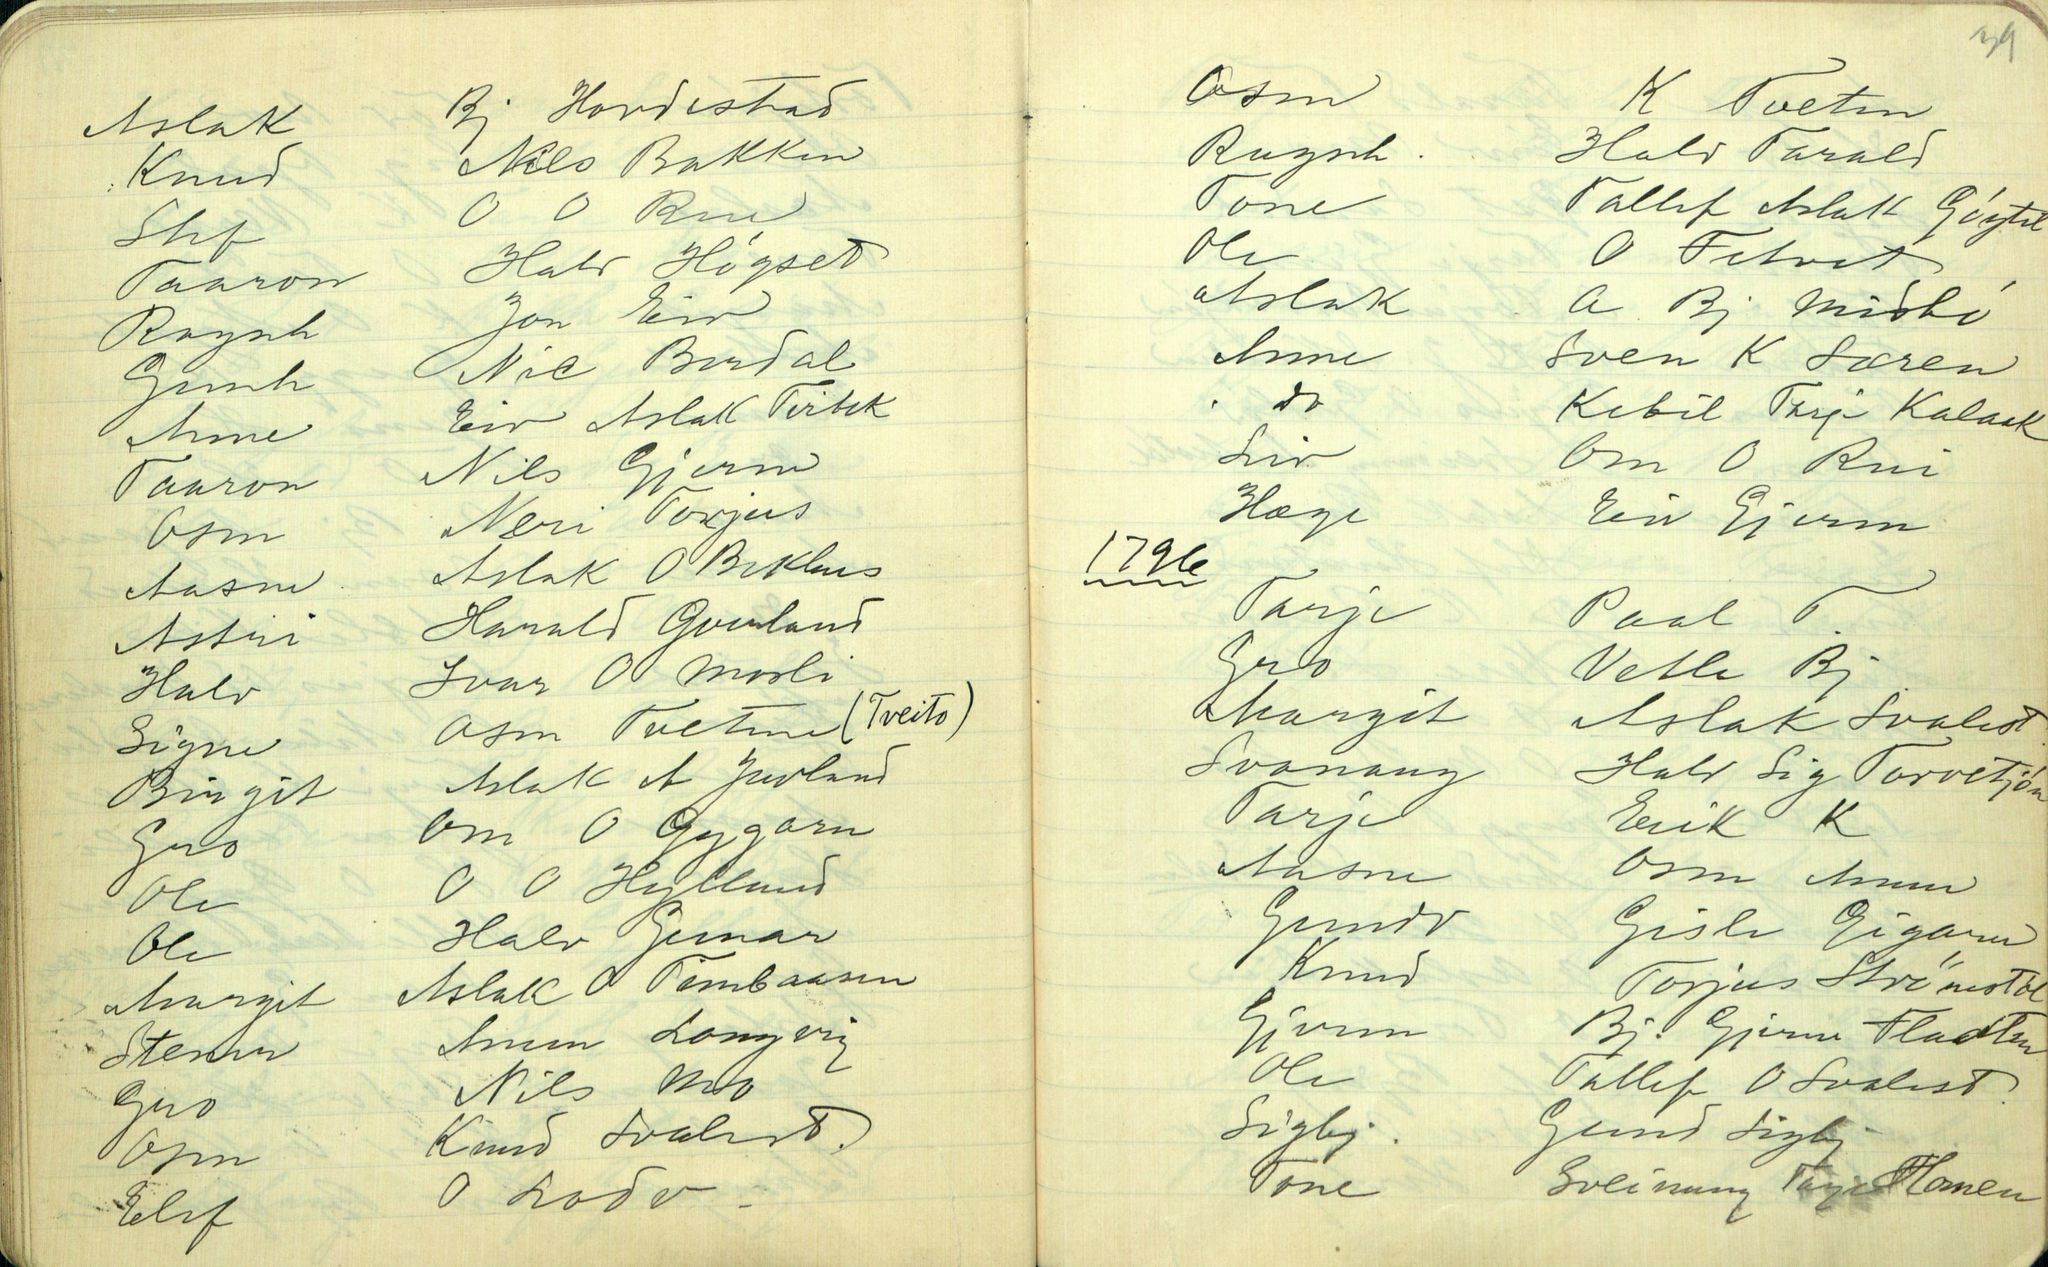 Aslak Bj Hovdestad
Knud Nils Bakken
Slef O O Rue
Taaron Halv Högset
Ragnh Jon Eiv
Gunh Nic Bordal
Anne Eiv Aslak Tirbek
Taaron Nils Gjerm
Osm Neri Torjus
Aasne Aslak O Bekhus
Astri Harald Gverland
Halv Ivar O Mosli
Signe Osm Tvetene (Tveito)
Birgit Aslak A Juvland
Gro Om O Gygarn
Ole O O Hylland
Ole Halv Gunnar
Margit Aslak O Timbaasen
Stener Anun Longvig
Gro Nils Mo
Osm Knud Svalest.
Elef O Lodv -
39
Osm K Tveten
Ragnh. Halv Tarald
Tone Tallef Aslak
Ole O Felvet
Aslak A Bj Midbö
Anne Sven K Særen
do Kebil Tarje Kalaak
Liv Om O Rui
Hæge Eiv Gjerm
1796
Tarje Paal T.
Gro Vetle Bj
Margit Aslak Svalest.
Svanaug Halv Sig Torvetjön
Tarje Erik K
Aasne Osm Anun
Gundv Gisle Gigarn
Knud Torjus Strömstöl
Gjerm Bj. Gjerm Fladtin
Ole Tallef O Svalest.
Sigbj. Gund Sigbj
Tone Sveinung Tarje Homen